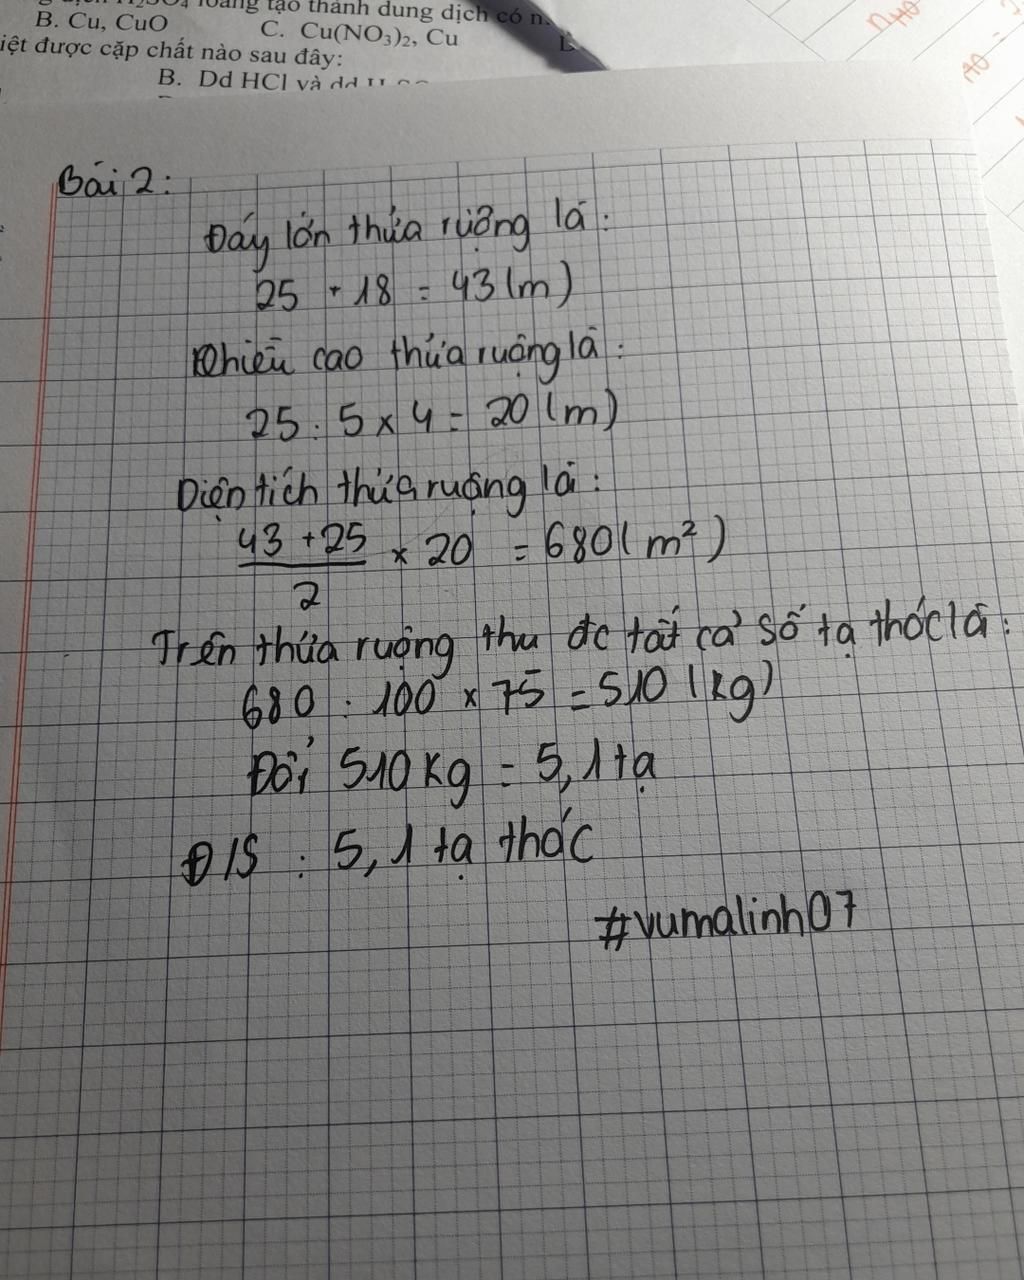 loãng tạo thành dung dịch có
B. Cu, CuO C. Cu(NO₃)₂, Cu
iệt được cặp chất nào sau đây:
B. Dd HCl và dd
Bài 2:
Đáy lớn thửa ruộng là:
25 + 18 = 43 (m)
Chiều cao thửa ruộng là:
25 : 5 x 4 = 20 (m)
Diện tích thửa ruộng là:
(43 + 25)/2 x 20 = 680 (m²)
Trên thửa ruộng thu đc tất cả số tạ thóc là:
680 : 100 x 75 = 510 (kg)
Đổi 510 kg = 5,1 tạ
Đ/S : 5,1 tạ thóc
#vumalinh07